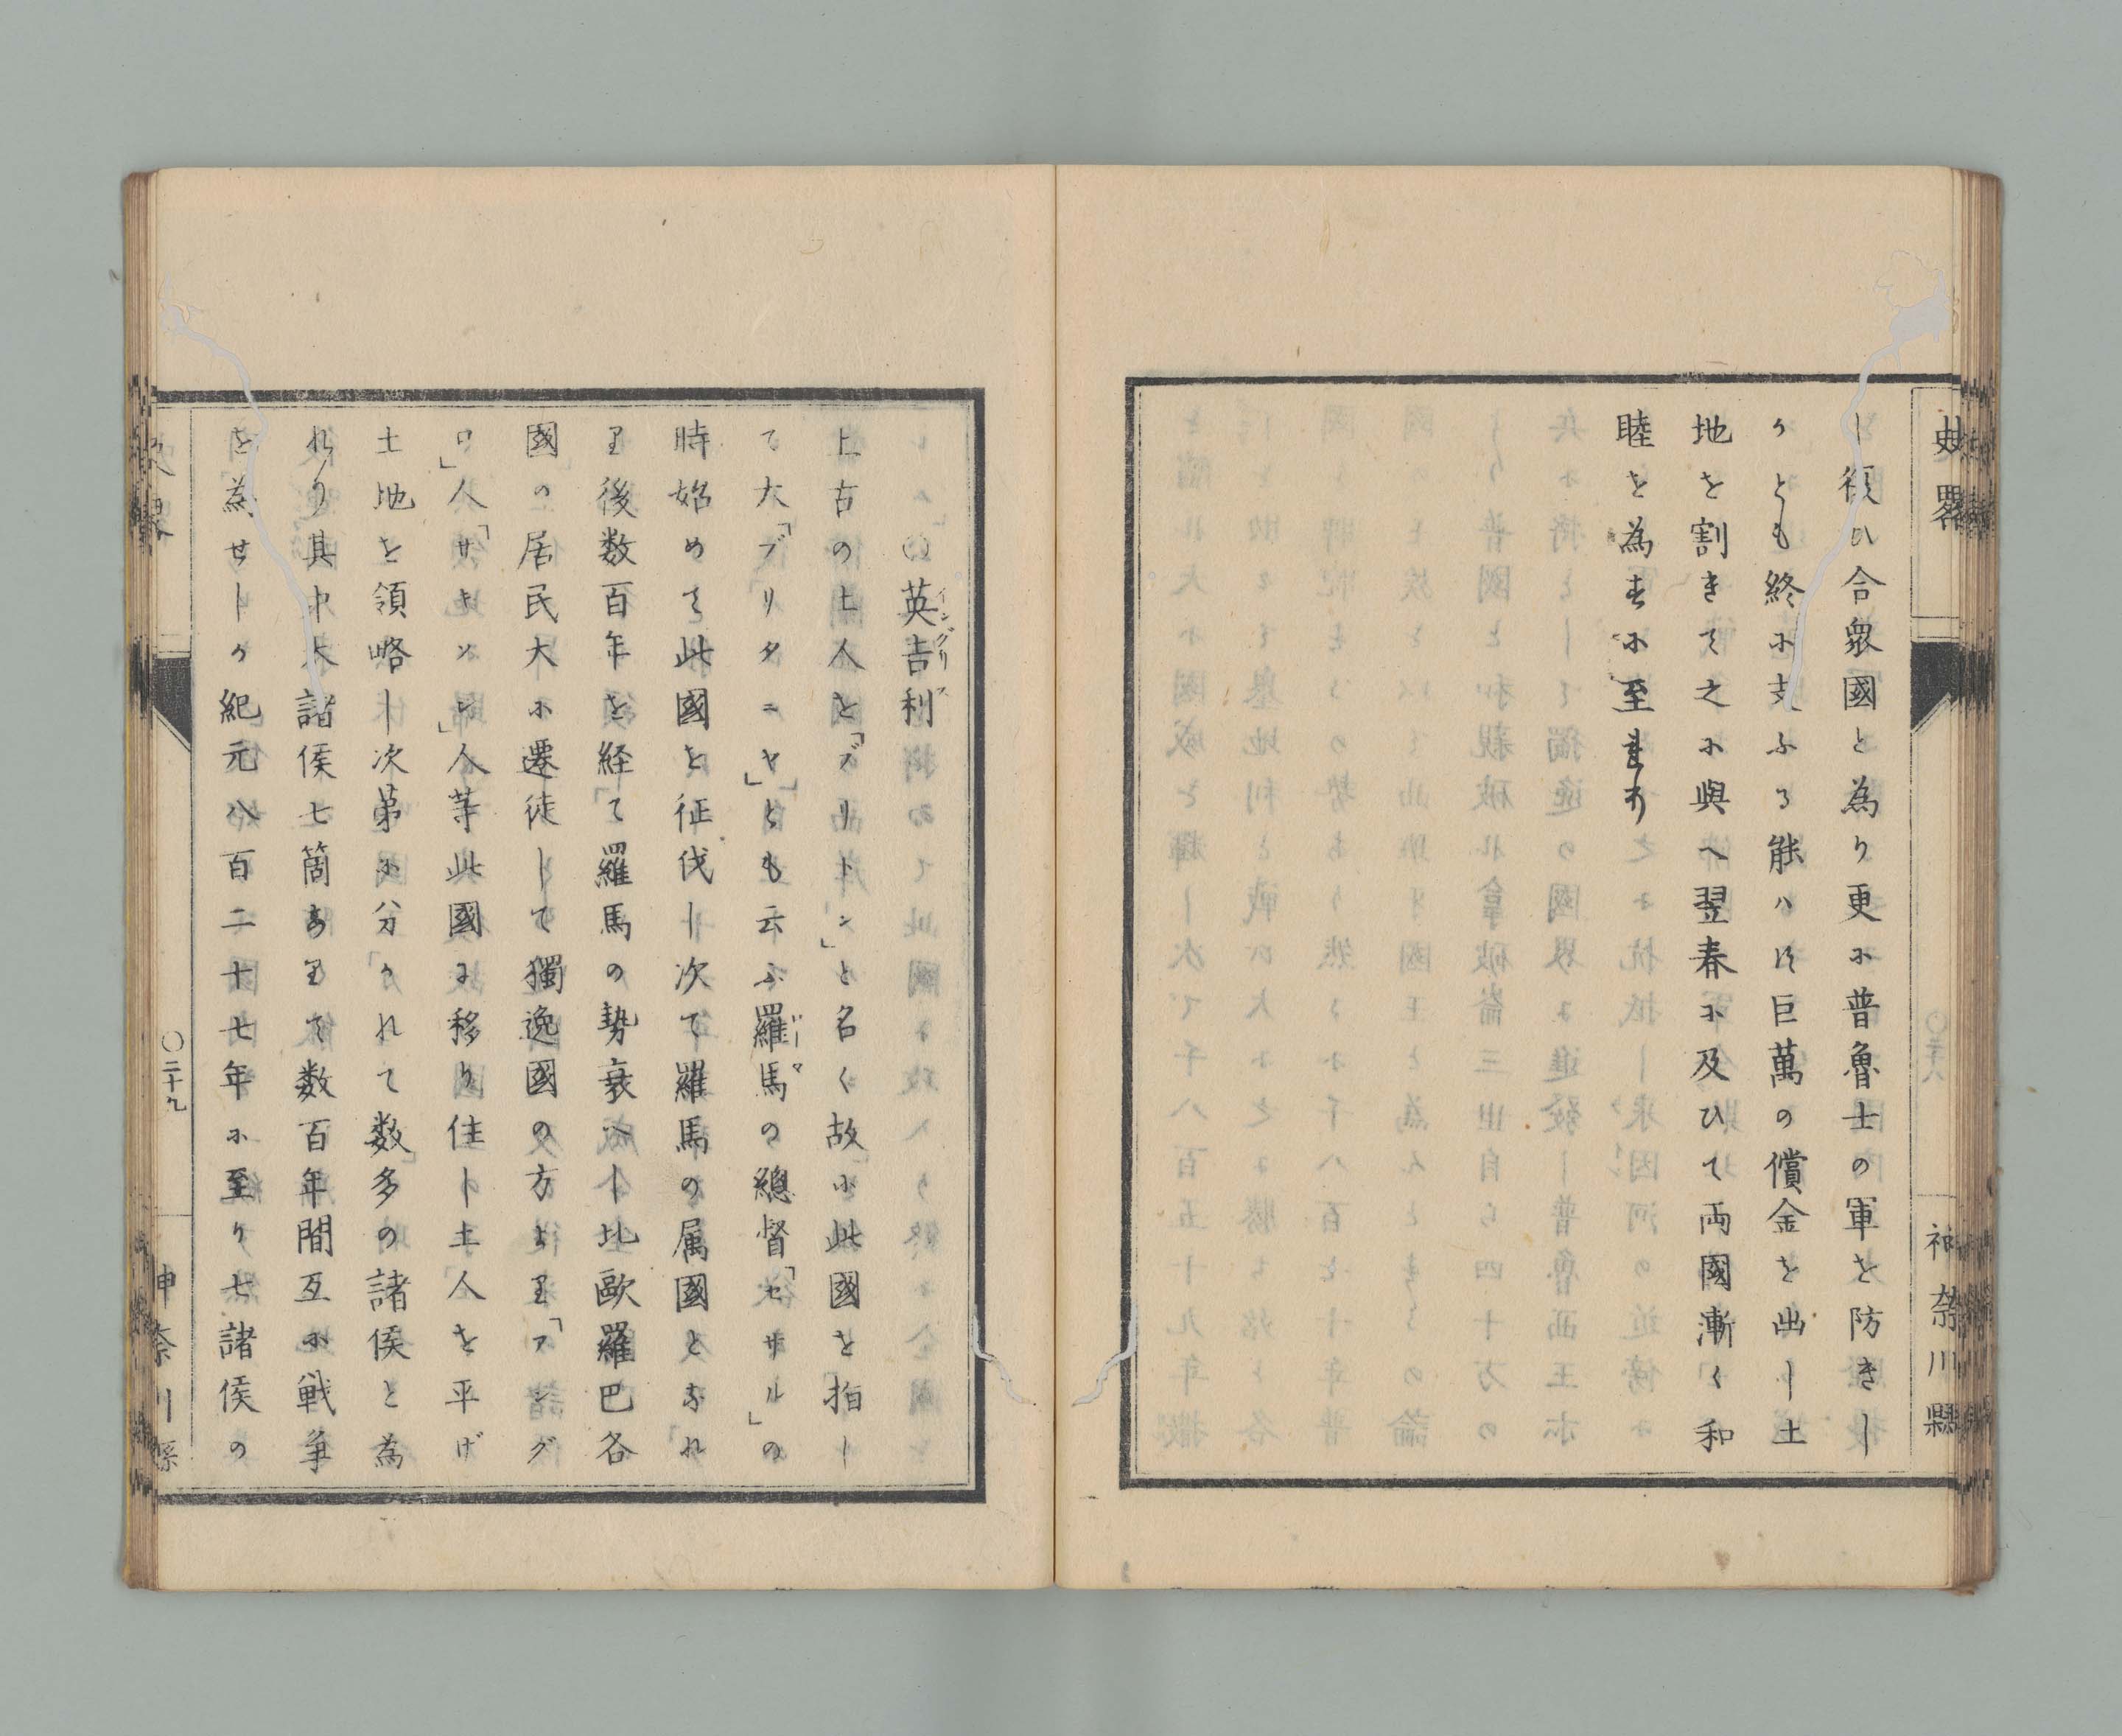 史畧
神奈川縣
し領ひ合衆國と為り更ふ普魯士の軍を防きし
かとも終ふ支ふる能ハす巨萬の償金を出し土
地を割きて之ふ與へ翌春ふ及ひて両國漸く和
睦を為すふ至れり
○英吉利
イングリス
上古の土人を「ブリトン」と名く故ふ此國を指し
て大「ブリタニヤ」とも云ふ羅馬の總督「セサル」の
ローマ
時始めて此國を征伐し次て羅馬の属國となれ
り後数百年を経て羅馬の勢衰へし比歐羅巴各
國の居民大ふ遷徒して獨逸國の方より「アング
ロ」人「サキソン」人等此國に移り住し土人を平げ
土地を領略し次第ふ分かれて数多の諸侯と為
れり其中大諸侯七箇ありて数百年間互ふ戦争
を為せしか紀元八百二十七年ふ至り七諸侯の
史畧
○二十九
神奈川縣